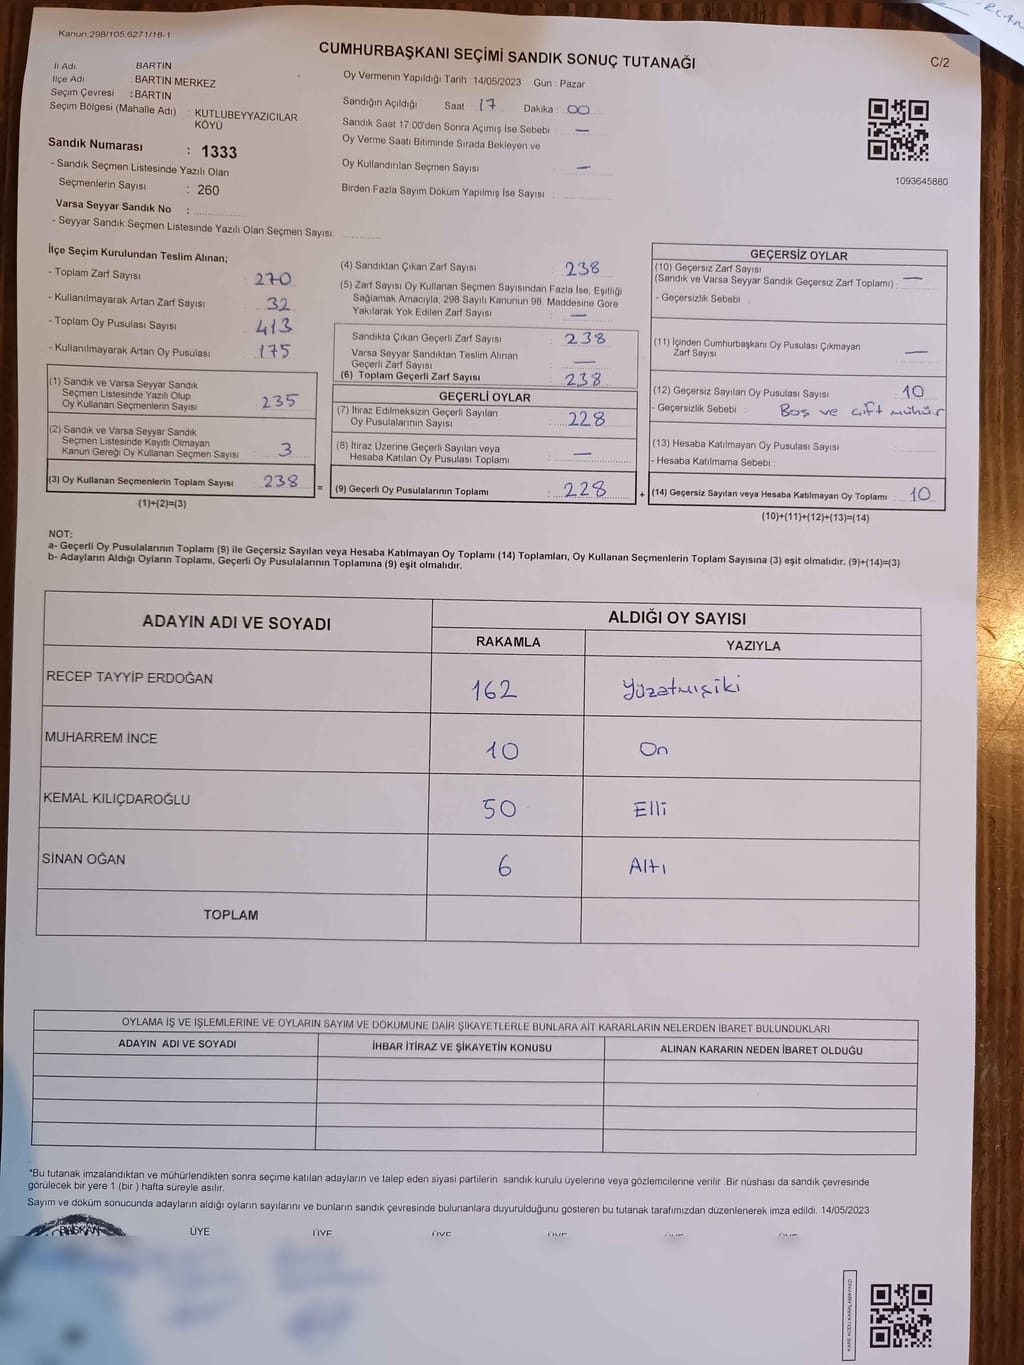 Kanun:298/105.6271/18-1
CUMHURBAŞKANI SEÇİMİ SANDIK SONUÇ TUTANAĞI
C/2
İl Adı : BARTIN
İlçe Adı : BARTIN MERKEZ
Seçim Çevresi : BARTIN
Seçim Bölgesi (Mahalle Adı) : KUTLUBEYYAZICILAR KÖYÜ
Sandık Numarası : 1333
- Sandık Seçmen Listesinde Yazılı Olan
Seçmenlerin Sayısı : 260
Varsa Seyyar Sandık No :
- Seyyar Sandık Seçmen Listesinde Yazılı Olan Seçmen Sayısı:
Oy Vermenin Yapıldığı Tarih 14/05/2023 Gün : Pazar
Sandığın Açıldığı Saat 17 Dakika : 00
Sandık Saat 17:00'den Sonra Açımış İse Sebebi : —
Oy Verme Saati Bitiminde Sırada Bekleyen ve
Oy Kullandırılan Seçmen Sayısı : —
Birden Fazla Sayım Döküm Yapılmış İse Sayısı :
1093645880
İlçe Seçim Kurulundan Teslim Alınan;
- Toplam Zarf Sayısı : 270
- Kullanılmayarak Artan Zarf Sayısı : 32
- Toplam Oy Pusulası Sayısı : 413
- Kullanılmayarak Artan Oy Pusulası : 175
(1) Sandık ve Varsa Seyyar Sandık
Seçmen Listesinde Yazılı Olup
Oy Kullanan Seçmenlerin Sayısı : 235
(2) Sandık ve Varsa Seyyar Sandık
Seçmen Listesinde Kayıtlı Olmayan
Kanun Gereği Oy Kullanan Seçmen Sayısı : 3
(3) Oy Kullanan Seçmenlerin Toplam Sayısı : 238
(1)+(2)=(3)
=
(4) Sandıktan Çıkan Zarf Sayısı : 238
(5) Zarf Sayısı Oy Kullanan Seçmen Sayısından Fazla İse, Eşitliği
Sağlamak Amacıyla, 298 Sayılı Kanunun 98. Maddesine Göre
Yakılarak Yok Edilen Zarf Sayısı : —
Sandıkta Çıkan Geçerli Zarf Sayısı : 238
Varsa Seyyar Sandıktan Teslim Alınan
Geçerli Zarf Sayısı : —
(6) Toplam Geçerli Zarf Sayısı : 238
GEÇERLİ OYLAR
(7) İtiraz Edilmeksizin Geçerli Sayılan
Oy Pusulalarının Sayısı : 228
(8) İtiraz Üzerine Geçerli Sayılan veya
Hesaba Katılan Oy Pusulası Toplamı : —
(9) Geçerli Oy Pusulalarının Toplamı : 228
+
GEÇERSİZ OYLAR
(10) Geçersiz Zarf Sayısı
(Sandık ve Varsa Seyyar Sandık Geçersiz Zarf Toplamı) : —
- Geçersizlik Sebebi :
(11) İçinden Cumhurbaşkanı Oy Pusulası Çıkmayan
Zarf Sayısı : —
(12) Geçersiz Sayılan Oy Pusulası Sayısı : 10
- Geçersizlik Sebebi : Boş ve çift mühür
(13) Hesaba Katılmayan Oy Pusulası Sayısı :
- Hesaba Katılmama Sebebi :
(14) Geçersiz Sayılan veya Hesaba Katılmayan Oy Toplamı : 10
(10)+(11)+(12)+(13)=(14)
NOT:
a- Geçerli Oy Pusulalarının Toplamı (9) ile Geçersiz Sayılan veya Hesaba Katılmayan Oy Toplamı (14) Toplamları, Oy Kullanan Seçmenlerin Toplam Sayısına (3) eşit olmalıdır. (9)+(14)=(3)
b- Adayların Aldığı Oyların Toplamı, Geçerli Oy Pusulalarının Toplamına (9) eşit olmalıdır.
ADAYIN ADI VE SOYADI
ALDIĞI OY SAYISI
RAKAMLA YAZIYLA
RECEP TAYYİP ERDOĞAN 162 Yüzatmışiki
MUHARREM İNCE 10 On
KEMAL KILIÇDAROĞLU 50 Elli
SİNAN OĞAN 6 Altı
TOPLAM
OYLAMA İŞ VE İŞLEMLERİNE VE OYLARIN SAYIM VE DÖKÜMÜNE DAİR ŞİKAYETLERLE BUNLARA AİT KARARLARIN NELERDEN İBARET BULUNDUKLARI
ADAYIN ADI VE SOYADI İHBAR İTİRAZ VE ŞİKAYETİN KONUSU ALINAN KARARIN NEDEN İBARET OLDUĞU
*Bu tutanak imzalandıktan ve mühürlendikten sonra seçime katılan adayların ve talep eden siyasi partilerin sandık kurulu üyelerine veya gözlemcilerine verilir .Bir nüshası da sandık çevresinde
görülecek bir yere 1 (bir ) hafta süreyle asılır.
Sayım ve döküm sonucunda adayların aldığı oyların sayılarını ve bunların sandık çevresinde bulunanlara duyurulduğunu gösteren bu tutanak tarafımızdan düzenlenerek imza edildi. 14/05/2023
BAŞKAN ÜYE ÜYE ÜYE ÜYE
KARE KODU KARALAMAYINIZ!